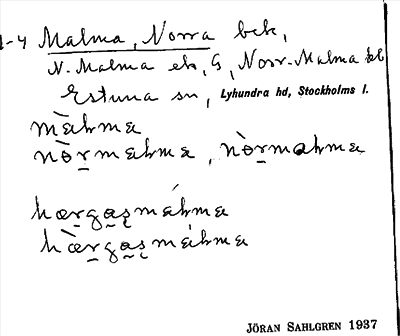 1-4 Malma, Norra bek,
N. Malma ek, G, Norr-Malma
Estuna sn, Lyhundra hd, Stockholms l.
màlma
nòrmalma, nòrmalma
hærgasmálma
hærgasmálma
JÖRAN SAHLGREN 1937